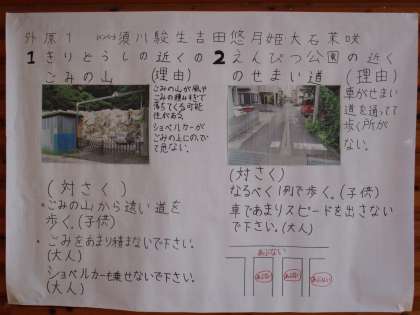 外原1 メンバー 須川駿生 吉田悠月姫 大石茉咲
1 きりとうしの近くの
ごみの山
(理由)
ごみの山が風や
ごみの積みすぎで
落ちてくる可能
性がある。
ショベルカーが
ごみの上にのって
て危ない。
(対さく)
ごみの山から遠い道を
歩く。(子供)
ごみをあまり積まないで下さい。
(大人)
ショベルカーも乗せないで下さい。
(大人)
2 えんぴつ公園の近く
のせまい道
(理由)
車がせまい
道を通ってて
歩く所が
ない。
(対さく)
なるべく1列で歩く。(子供)
車であまりスピードを出さない
で下さい。(大人)
あぶない
あぶない
あぶない
あぶない